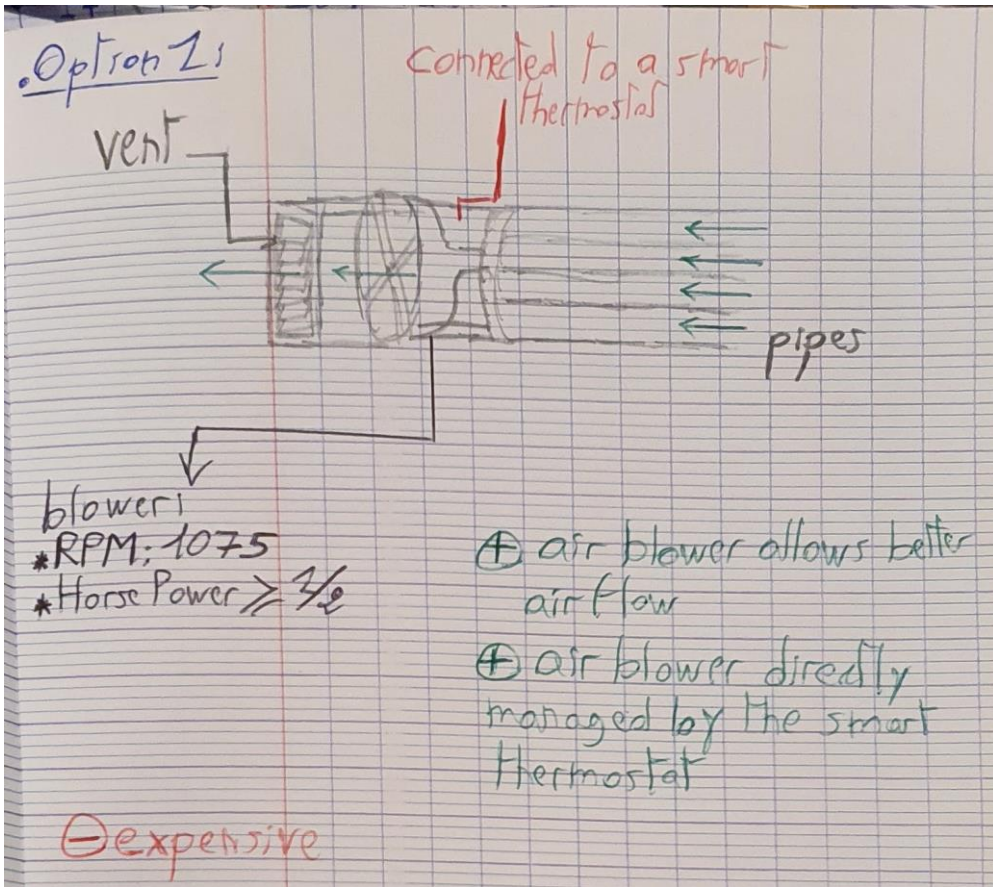 .Option 1:
connected to a smart
thermostat
vent
pipes
blower:
*RPM: 1075
*Horse Power ≥ 1/2
⊕ air blower allows better
air flow
⊕ air blower directly
managed by the smart
thermostat
⊖ expensive